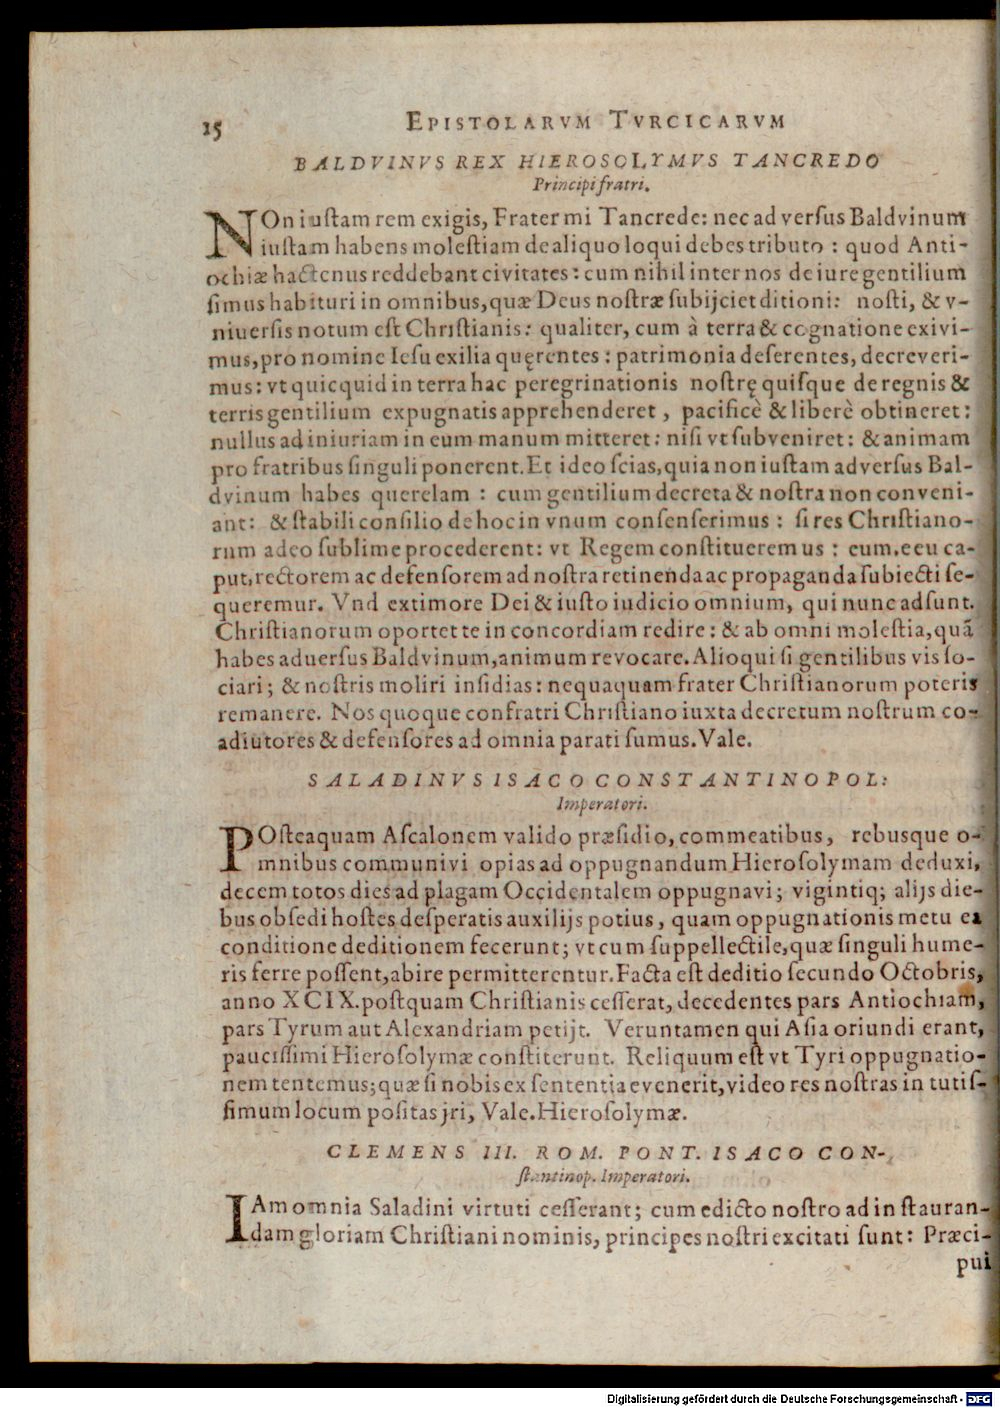 15 EPISTOLARVM TVRCICARVM
BALDVINVS REX HIEROSOLYMVS TANCREDO
Principi fratri.
NOn iustam rem exigis, Frater mi Tancrede: nec ad versus Baldvinum
iustam habens molestiam de aliquo loqui debes tributo : quod Anti-
ochiæ hactenus reddebant civitates: cum nihil inter nos de iure gentilium
simus habituri in omnibus, quæ Deus nostræ subijciet ditioni: nosti, & v-
niversis notum est Christianis: qualiter, cum à terra & cognatione exivi-
mus, pro nomine Iesu exilia quęrentes : patrimonia deserentes, decreveri-
mus: vt quicquid in terra hac peregrinationis nostrę quisque de regnis &
terris gentilium expugnatis apprehenderet, pacificè & liberè obtineret:
nullus ad iniuriam in eum manum mitteret: nisi vt subveniret: & animam
pro fratribus singuli ponerent. Et ideo scias, quia non iustam adversus Bal-
dvinum habes querelam : cum gentilium decreta & nostra non conveni-
ant: & stabili consilio de hoc in vnum consenserimus : si res Christiano-
rum adeo sublime procederent: vt Regem constitueremus : eum, ceu ca-
put, rectorem ac defensorem ad nostra retinenda ac propaganda subiecti se-
queremur. Vnd extimore Dei & iusto iudicio omnium, qui nunc adsunt.
Christianorum oportet te in concordiam redire: & ab omni molestia, quã
habes aduersus Baldvinum, animum revocare. Alioqui si gentilibus vis so-
ciari; & nostris moliri insidias: nequaquam frater Christianorum poteris
remanere. Nos quoque confratri Christiano iuxta decretum nostrum co-
adiutores & defensores ad omnia parati sumus. Vale.
SALADINVS ISACO CONSTANTINOPOL:
Imperatori.
POsteaquam Ascalonem valido præsidio, commeatibus, rebusque o-
mnibus communivi opias ad oppugnandum Hierosolymam deduxi,
decem totos dies ad plagam Occidentalem oppugnavi; vigintiq; alijs die-
bus obsedi hostes desperatis auxilijs potius, quam oppugnationis metu ea
conditione deditionem fecerunt; vt cum suppellectile, quæ singuli hume-
ris ferre possent, abire permitterentur. Facta est deditio secundo Octobris,
anno XCIX. postquam Christianis cesserat, decedentes pars Antiochiam,
pars Tyrum aut Alexandriam petijt. Veruntamen qui Asia oriundi erant,
paucissimi Hierosolymæ constiterunt. Reliquum est vt Tyri oppugnatio-
nem tentemus; quæ si nobis ex sententia evenerit, video res nostras in tutis-
simum locum positas jri, Vale. Hierosolymæ.
CLEMENS III. ROM. PONT. ISACO CON-
stantinop. Imperatori.
IAm omnia Saladini virtuti cesserant; cum edicto nostro ad instauran-
dam gloriam Christiani nominis, principes nostri excitati sunt: Præci-
pui
Digitalisierung gefördert durch die Deutsche Forschungsgemeinschaft - DFG